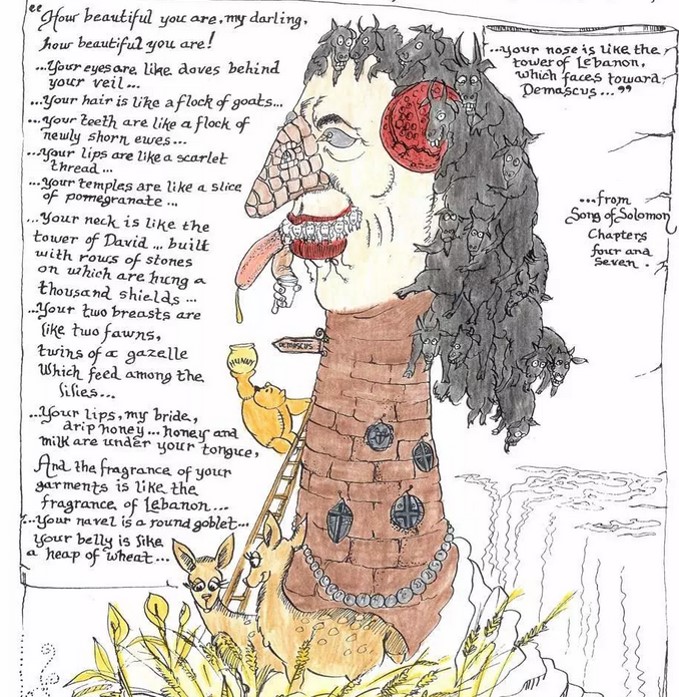 "How beautiful you are, my darling,
how beautiful you are!
...Your eyes are like doves behind
your veil...
...Your hair is like a flock of goats...
...your teeth are like a flock of
newly shorn ewes...
...your lips are like a scarlet
thread...
...your temples are like a slice
of pomegranate...
...your neck is like the
tower of David ... built
with rows of stones
on which are hung a
thousand shields ...
...Your two breasts are
like two fawns,
twins of a gazelle
Which feed among the
lilies...
...Your lips, my bride,
drip honey... honey and
milk are under your tongue,
And the fragrance of your
garments is like the
fragrance of Lebanon...
...Your navel is a round goblet...
your belly is like
a heap of wheat...
...your nose is like the
tower of Lebanon,
which faces toward
Damascus..."
...from
Song of Solomon
Chapters
four and
seven.
DEMASCUS
HUNNY